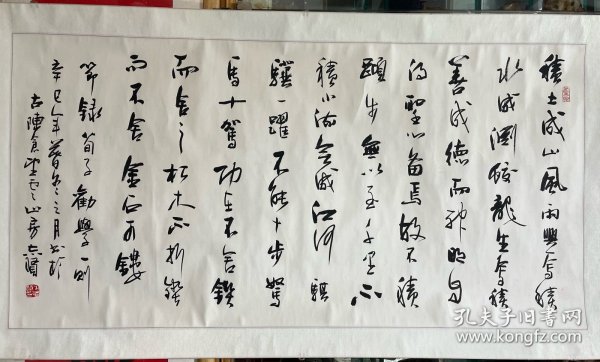 積土成山風雨興焉積
水成淵蛟龍生焉積
善成德而神明自
得聖心備焉故不積
蹞步無以至千里不
積小流無以成江河騏
驥一躍不能十步駑
馬十駕功在不舍鍥
而舍之朽木不折鍥
而不舍金石可鏤
節錄荀子勸學一則
辛巳年暮冬之月書於
古陳倉望雲山房
孔夫子旧书网
www.kongfz.com